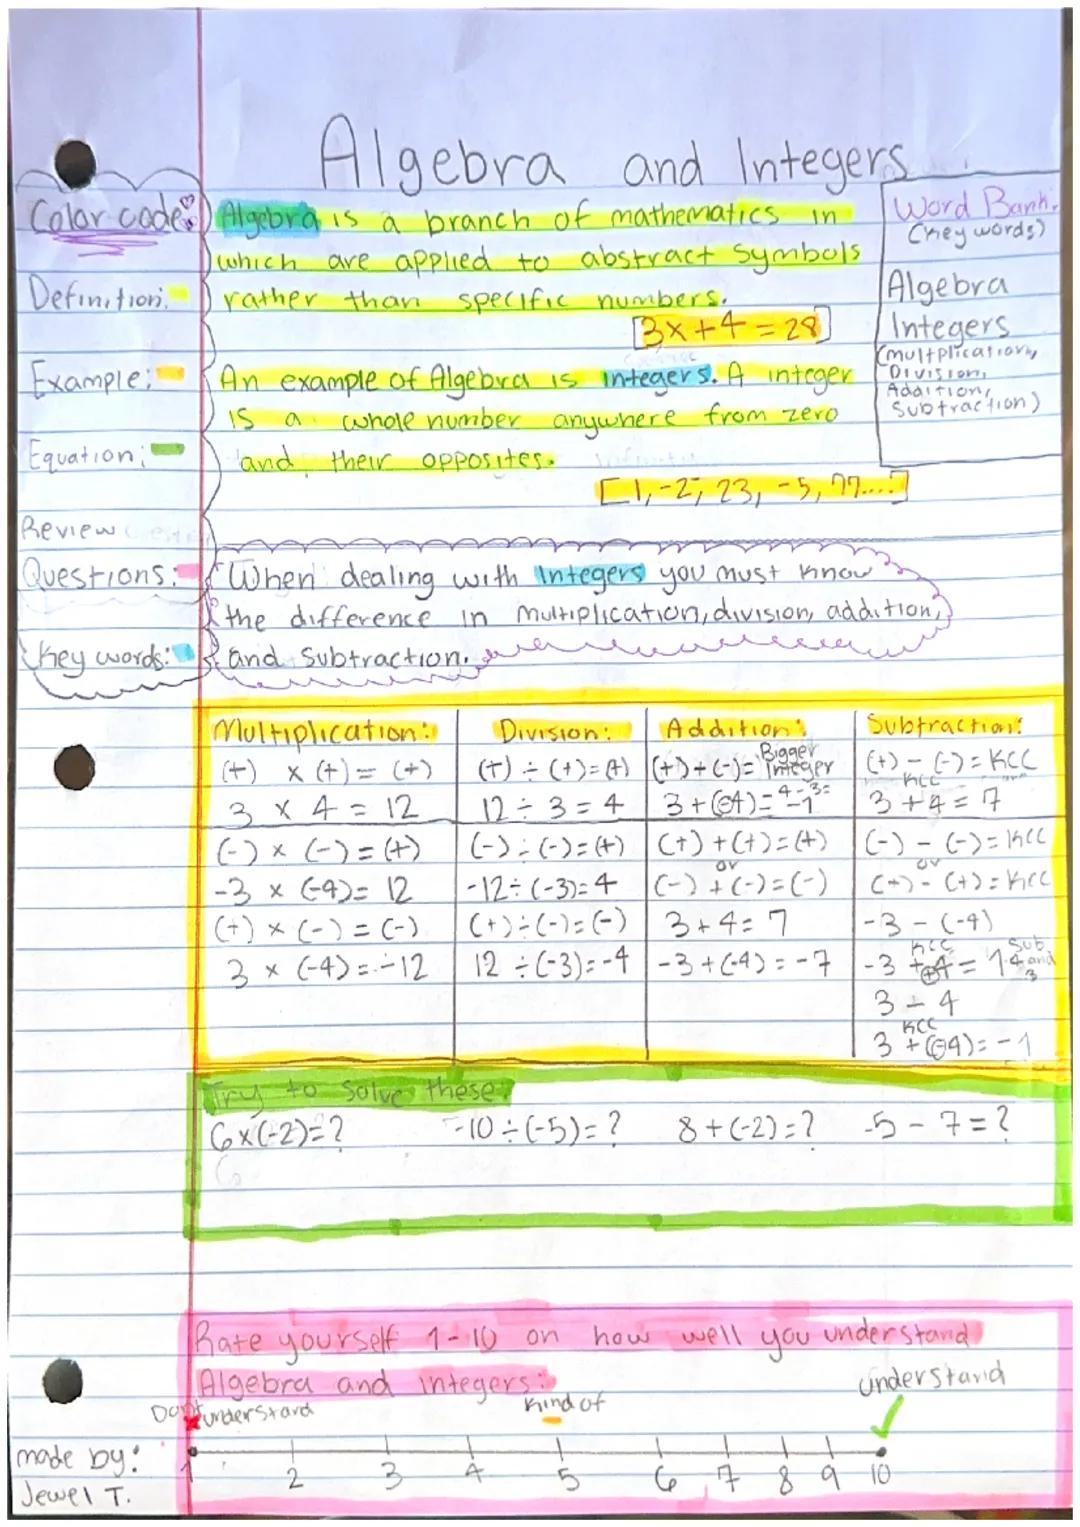 Algebra and Integers
Color code:
Definition:
Example:
Equation:
Review
Questions:
Key words:
Algebra is a branch of mathematics in
which are applied to abstract symbols
rather than specific numbers.
[3x+4=28]
An example of Algebra is integers. A integer
is a whole number anywhere from zero
and their opposites.
[1,-2, 23, -5, 77....]
Word Bank:
(key words)
Algebra
Integers
(multplication,
Division,
Addition,
Subtraction)
When dealing with Integers you must know
the difference in multiplication, division, addition,
and subtraction.
Multiplication:
(+) x (+) = (+)
3 x 4 = 12
(-) x (-) = (+)
-3 x (-4) = 12
(+) x (-) = (-)
3 x (-4) = -12
Division:
(+) ÷ (+) = (+)
12 ÷ 3 = 4
(-) ÷ (-) = (+)
-12 ÷ (-3) = 4
(+) ÷ (-) = (-)
12 ÷ (-3) = -4
Addition:
(+) + (-) = Bigger Integer
3 + (-4) = 4-3= -1
(+) + (+) = (+)
or
(-) + (-) = (-)
3 + 4 = 7
-3 + (-4) = -7
Subtraction:
(+) - (-) = KCC
KCC
3 + 4 = 7
(-) - (-) = KCC
or
(+) - (+) = KCC
-3 - (-4)
KCC
-3 + +4 = 1 Sub. 4 and 3
3 - 4
KCC
3 + (-4) = -1
Try to solve these:
6x(-2)=? -10÷(-5)=? 8+(-2)=? -5 - 7=?
Rate yourself 1-10 on how well you understand
Algebra and integers:
Don't understand
Kind of
understand
1 2 3 4 5 6 7 8 9 10
made by:
Jewel T.